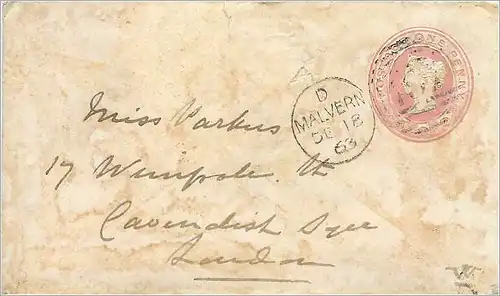 POSTAGE ONE PENNY
D
MALVERN
DE 18
63
Miss Parkes
17 Wimpole St
Cavendish Sqre
London